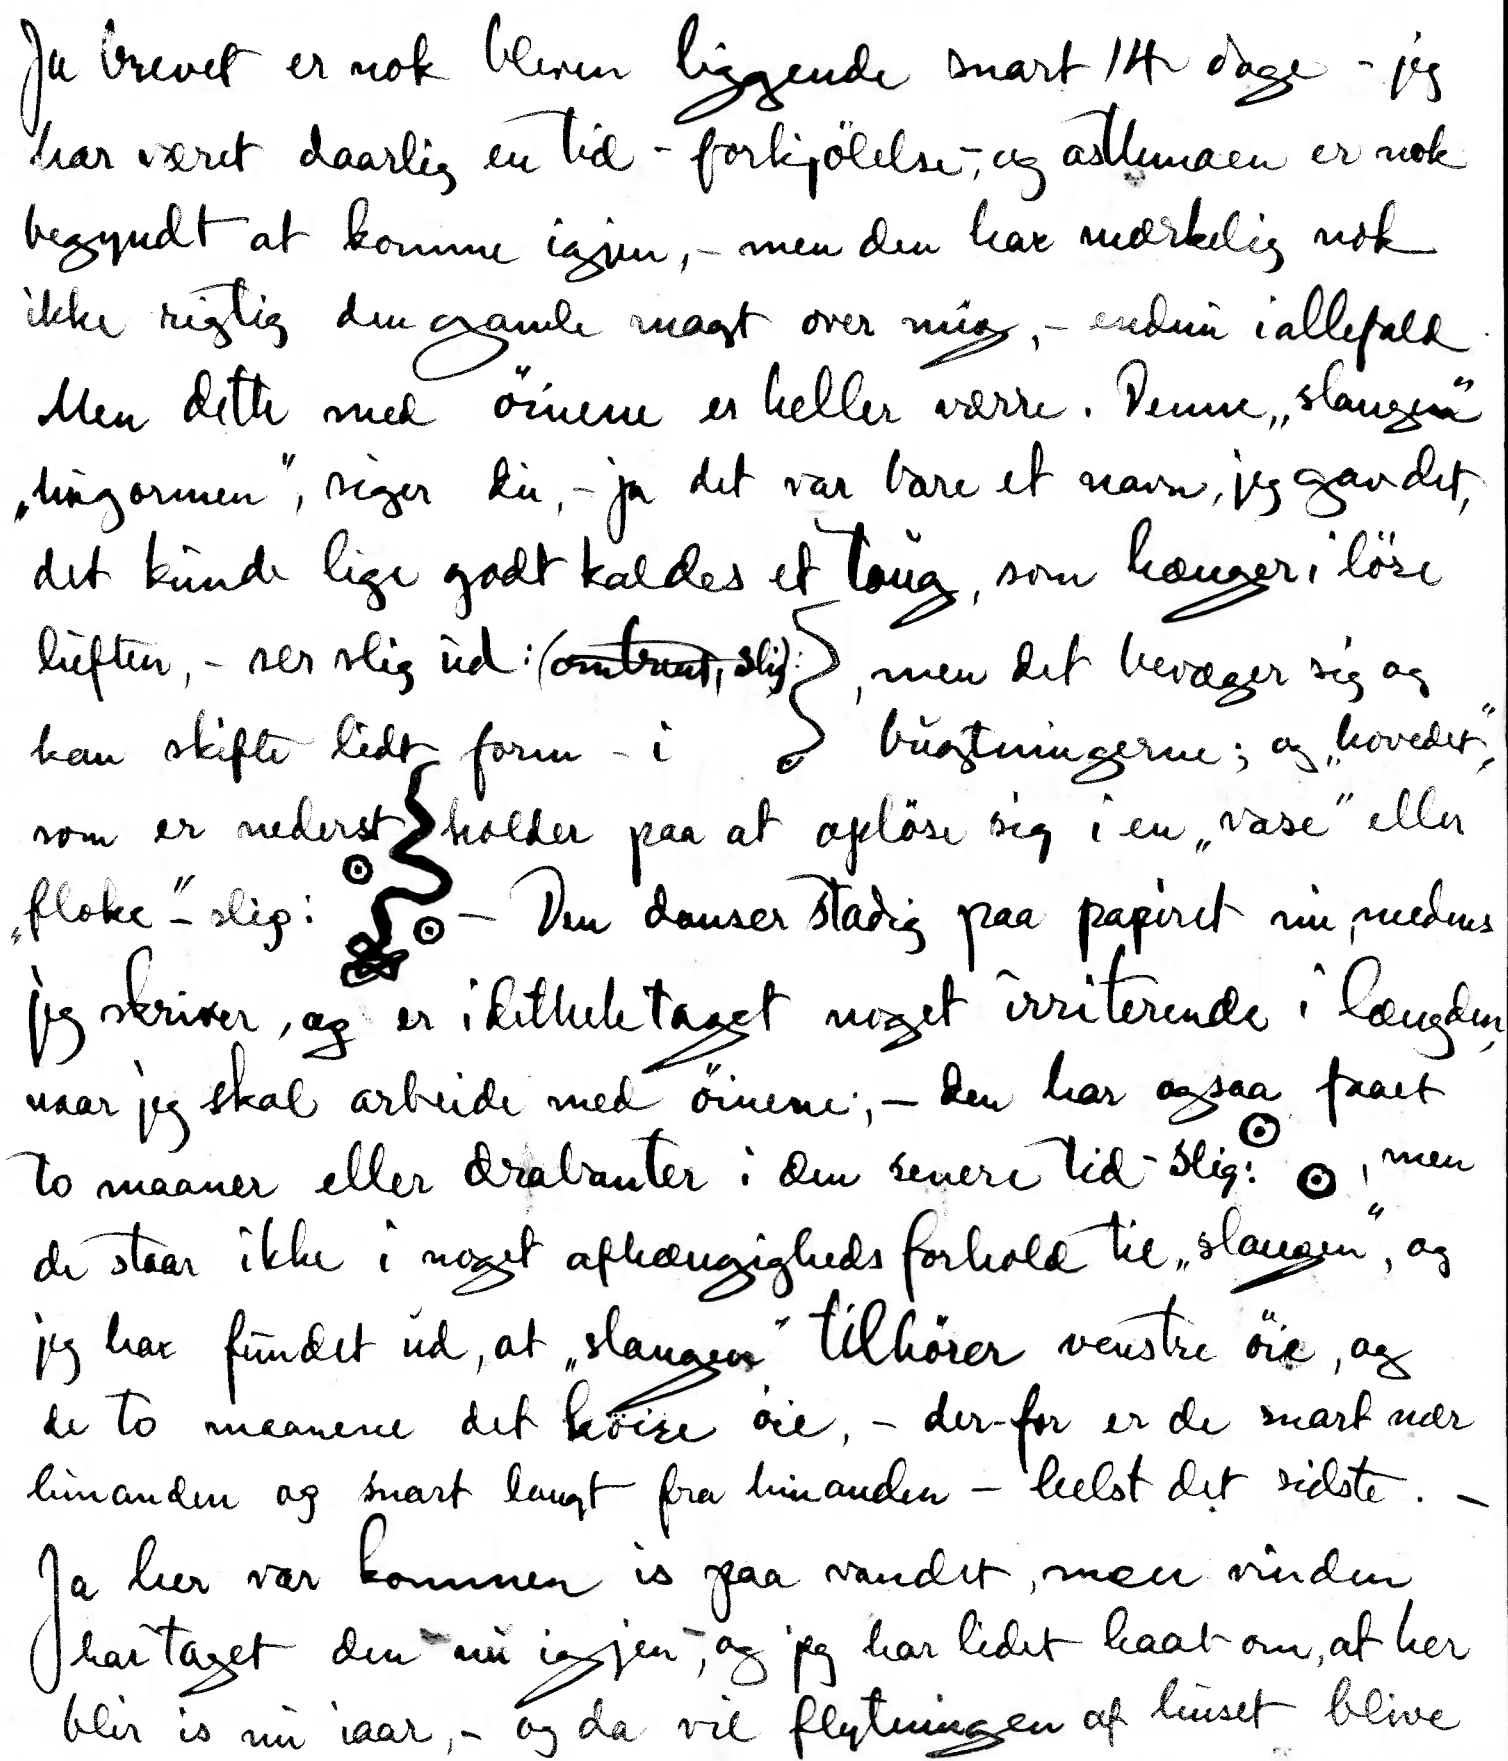 Ja brevet er nok bleven liggende snart 14 dage - jeg
har været daarlig en tid - forkjölelse, - og asthmaen er nok
begyndt at komme igjen, - men den har mærkelig nok
ikke rigtig den gamle magt over mig, - endnu iallefald.
Men dette med öinene er heller værre. Denne „slangen"
„lingormen", siger du, - ja det var bare et navn, jeg gav det,
det kunde lige godt kaldes et toug, som hænger i löse
luften, - ser slig ud: (omtrent, slig): , men det bevæger sig og
kan skifte lidt form - i bugtningerne; og „hovedet",
som er nederst holder paa at oplöse sig i en „vase" eller
„floke" - slig: - Den danser stadig paa papiret nu, medens
jeg skriver, og er idethele taget noget irriterende i længden,
naar jeg skal arbeide med öinene; - den har ogsaa faaet
to maaner eller drabanter i den senere tid - slig: , men
de staar ikke i noget afhængigheds forhold til „slangen", og
jeg har fundet ud, at „slangen" tilhörer venstre öie, og
de to maanene det höire öie, - der-for er de snart nær
hinanden og snart langt fra hinanden - helst det sidste. -
Ja her var kommen is paa vandet, men vinden
har taget den nu igjen, og jeg har lidet haab om, at her
blir is nu iaar, - og da vil flytningen af huset blive